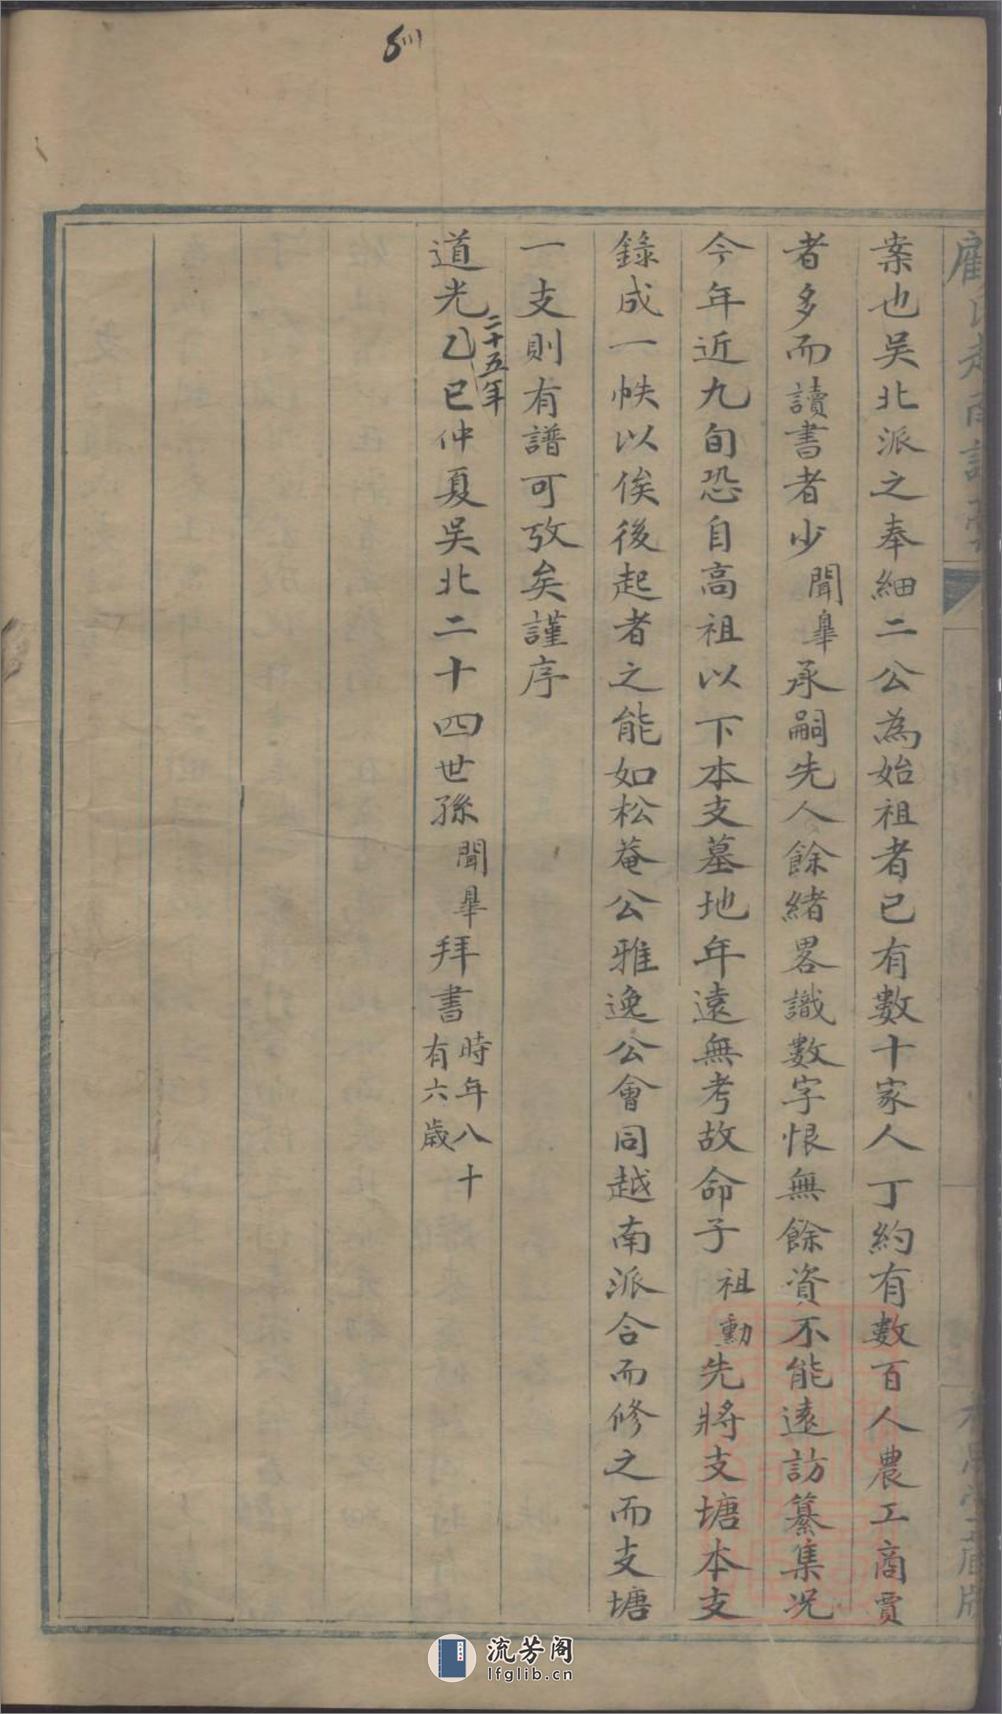 案也吳北派之奉細二公為始祖者已有數十家人丁約有數百人農工商賈
者多而讀書者少聞皐承嗣先人餘緒畧識數字恨無餘資不能遠訪纂集况
今年近九旬恐自高祖以下本支墓地年遠無考故命子祖勳先將支塘本支
錄成一帙以俟後起者之能如松菴公雅逸公會同越南派合而修之而支塘
一支則有譜可攷矣謹序
道光乙巳二十五年仲夏吳北二十四世孫聞皐拜書時年八十有六歲
流芳阁
lfglib.cn